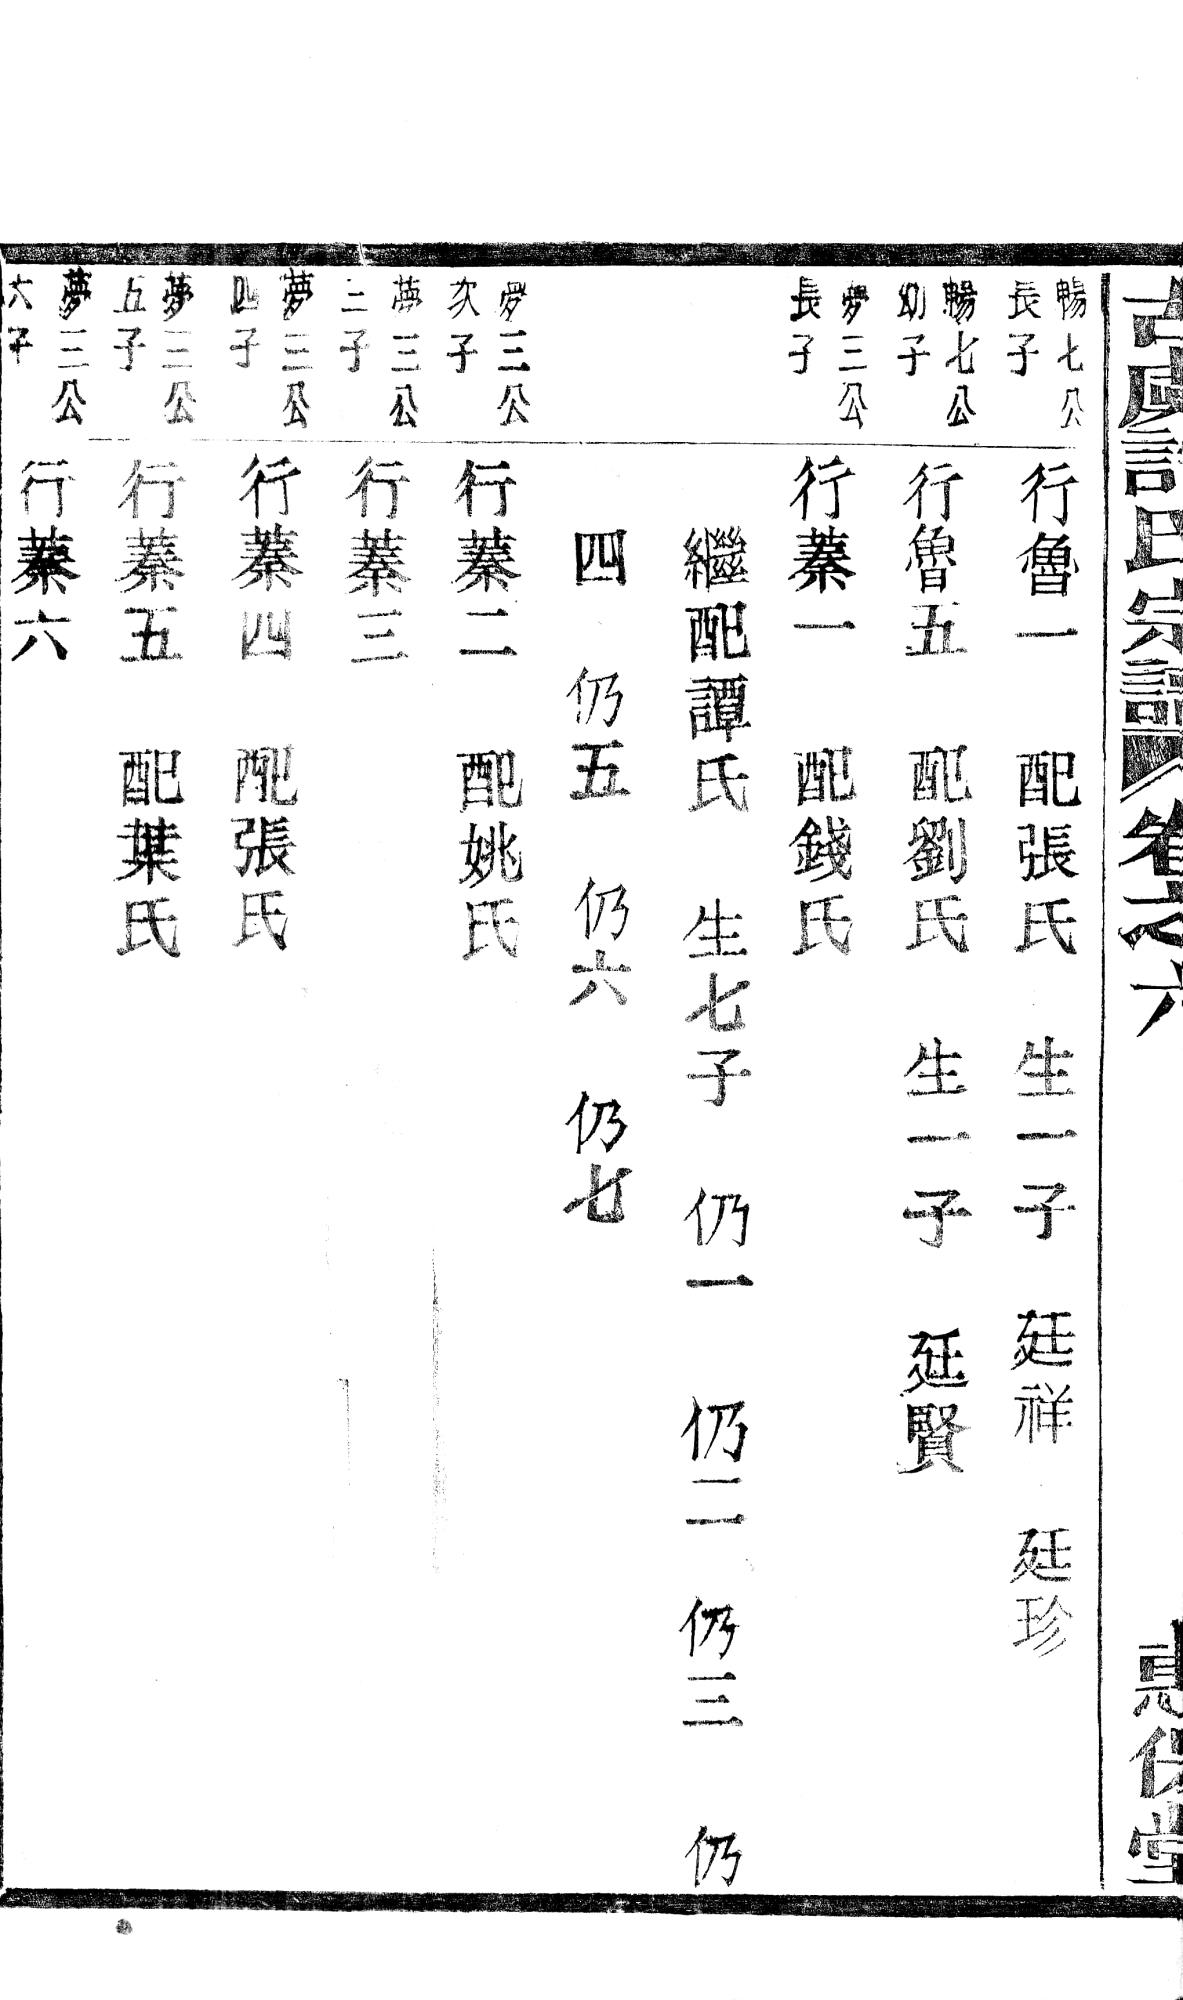 古虞許氏宗譜 卷之六
惠保堂
暢七公
長子
行魯一 配張氏 生一子 廷祥 廷珍
暢七公
幼子
行魯五 配劉氏 生一子 廷賢
夢三公
長子
行蓁一 配錢氏
繼配譚氏 生七子 仍一 仍二 仍三 仍
四 仍五 仍六 仍七
夢三公
次子
行蓁二 配姚氏
夢三公
三子
行蓁三
夢三公
四子
行蓁四 配張氏
夢三公
五子
行蓁五 配葉氏
夢三公
六子
行蓁六